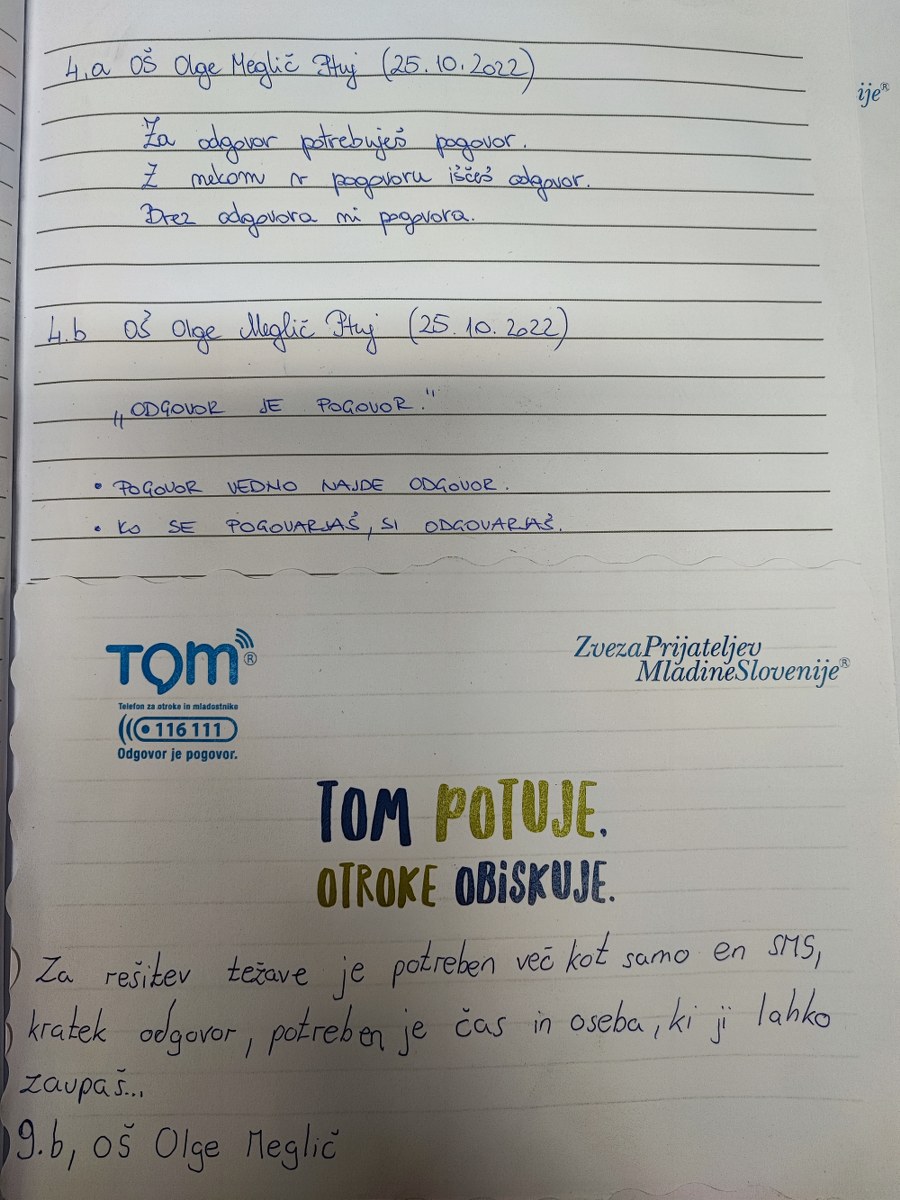 4.a OŠ Olge Meglič Ptuj (25.10.2022)
ije®
Za odgovor potrebuješ pogovor.
Z nekom v pogovoru iščeš odgovor.
Brez odgovora ni pogovora.
4.b OŠ Olge Meglič Ptuj (25.10.2022)
„ODGOVOR JE POGOVOR."
• POGOVOR VEDNO NAJDE ODGOVOR.
• KO SE POGOVARJAŠ, SI ODGOVARJAŠ.
TOM®
Telefon za otroke in mladostnike
116 111
Odgovor je pogovor.
ZvezaPrijateljev
MladineSlovenije®
TOM POTUJE.
OTROKE OBISKUJE.
Za rešitev težave je potreben več kot samo en SMS,
kratek odgovor, potreben je čas in oseba, ki ji lahko
zaupaš...
9.b, OŠ Olge Meglič